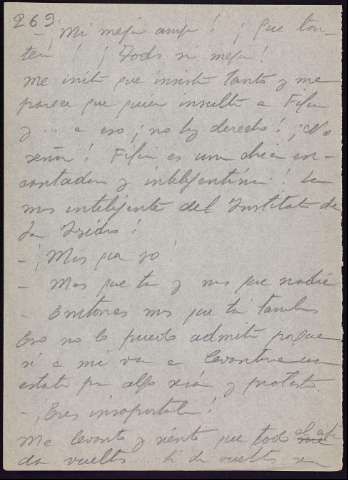 269
- ¡Mi mejor amiga! ¡Que ton-
tería! ¡Todo su mejor!
Me irrita que insista tanto y me
parece que quiere insultar a Fifi
y ... a eso ¡no hay derecho! ¡No
señor! Fifi es una chica en-
cantadora y inteligentísima! La
mas inteligente del Institut de
San Isidro!
- ¡Mas que yo!
- Mas que tu y mas que nadie
- Entonces mas que tú tambien
Eso no lo puedo admitir porque
si a mi va a levantarme un
estat por algo será y protesto
- ¡Eres insoportable!
Me levanto y siento que todo el at
da vueltas